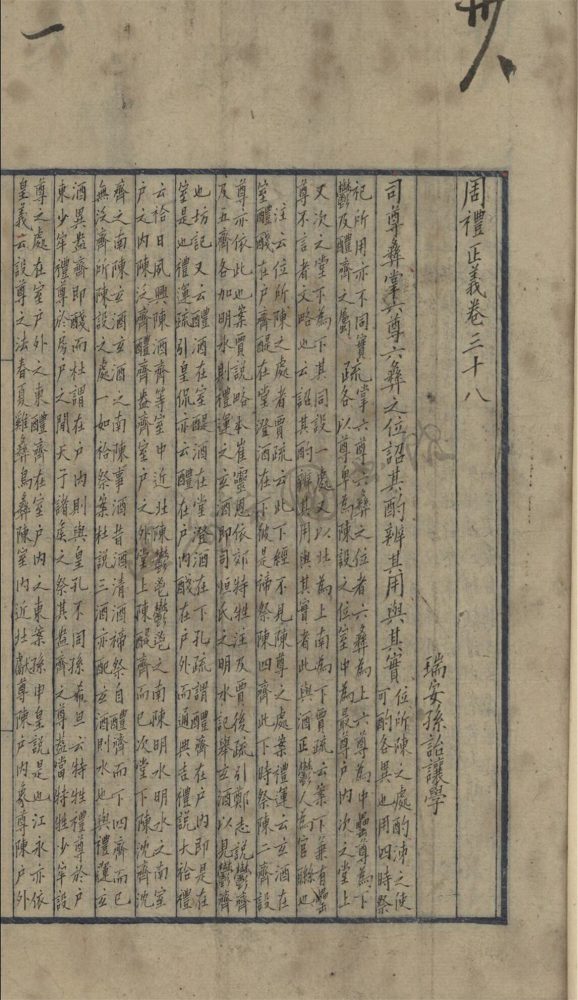 卅八
一
周禮正義卷三十八
瑞安孫詒讓學
司尊彝掌六尊六彝之位詔其酌辨其用與其實
位所陳之處酌沛之使
可酌各異也用四時祭
祀所用亦不同實
鬱及醴齊之屬
疏
掌六尊六彝之位者六彝為上六尊為中罍尊為下
各以尊卑為陳設之位室中為最尊戶內次之堂上
又次之堂下為下其同設一處又以北為上南為下賈疏云案下兼有罍
尊不言者文略也云詔其酌辨其用與其實者此與酒正鬱人為官聯也
注云位所陳之處者賈疏云此下經不見陳尊之處案禮運云玄酒在
室醴醆在戶齊醍在堂澄酒在下彼是禘祭陳四齊此下時祭陳二齊設
尊亦依此也案賈說略本崔靈恩依郊特牲注及賈後疏引鄭志說鬱齊
及五齊各加明水則禮運之玄酒即司烜氏之明水記舉玄酒以見鬱齊
也坊記又云醴酒在室醍酒在堂澄酒在下孔疏謂醴齊在戶內即是在
室是也禮運疏引皇侃亦云醴在戶內醆在戶外而通典吉禮說大祫禮
云祫日夙興陳酒齊等室中近北陳鬱鬯鬱鬯之南陳明水明水之南室
戶之內陳泛齊醴齊盎齊室戶之外堂上陳醍齊而已次堂下陳沈齊沈
齊之南陳玄酒玄酒之南陳事酒昔酒清酒禘祭自醴齊而下四齊而已
無泛齊所陳設之處一如祫祭案杜說三酒亦配玄酒則水也與禮運玄
酒異盎齊即醆而杜謂在戶內則與皇孔不同孫希旦云特牲禮尊於戶
東少牢禮尊於房戶之閒天子諸侯之祭其盎齊之尊蓋當特牲少牢設
尊之處在室戶外之東醴齊在室戶內之東案孫申皇說是也江永亦依
皇義云設尊之法春夏雞彝鳥彝陳室內近北獻尊陳戶內象尊陳戶外